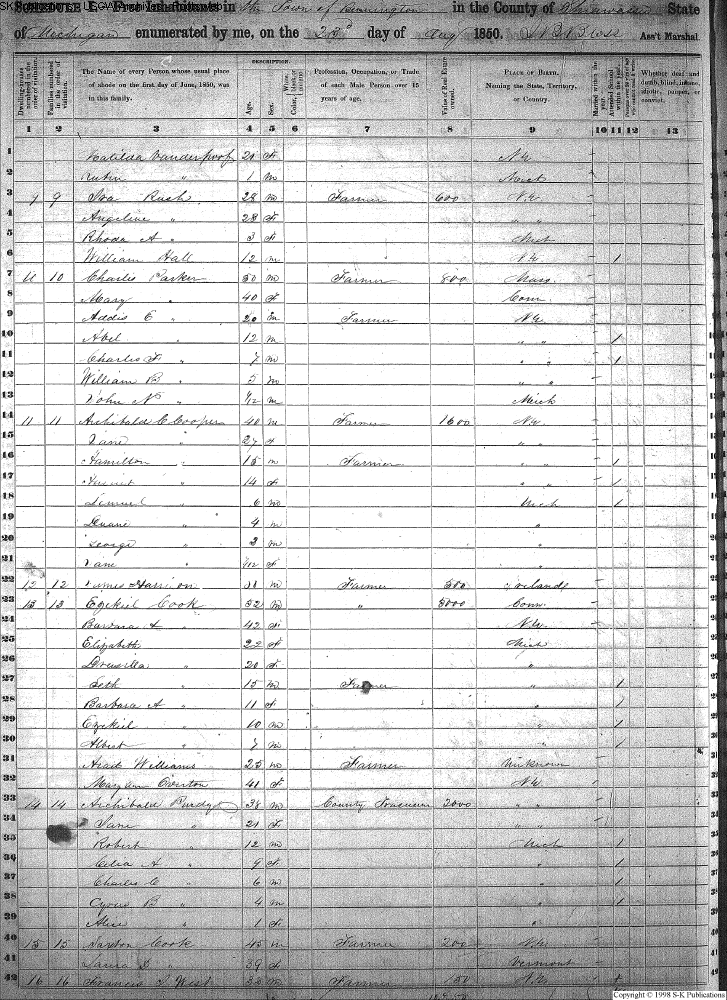 Free Inhabitants in the Town of Bennington in the County of Shiawassee State
of Michigan enumerated by me, on the day of Aug 1850. Ass't Marshal
DESCRIPTION.
The Name of every Person whose usual place of abode on the first day of June, 1850, was in this family.
Age.
Sex.
Profession, Occupation, or Trade of each Male Person over 15 years of age.
Value of Real Estate owned.
PLACE OF BIRTH. Naming the State, Territory, or Country.
Whether deaf and dumb, blind, insane, idiotic, pauper, or convict.
1 2 3 4 5 6 7 8 9 10 11 12 13
1 Matilda Vanderhoof 21 F N.Y.
2 " 1 m Mich
3 9 Rush 28 m Farmer 600 N.Y.
4 Angeline " 28 F " "
5 Rhoda A " 3 F Mich
6 William Hall 12 m N.Y. 1
7 10 Charles Parker 50 m Farmer 800 Mass.
8 Mary " 40 F Conn
9 Addis E " 20 m Farmer N.Y.
10 Abel " 12 m " " 1
11 Charles F " 7 m " " 1
12 William B " 5 m " "
13 John N " /12 m Mich
14 11 11 Archibald C Cooper 40 m Farmer 1600 N.Y.
15 Jane " 27 F " "
16 Hamilton " 15 m Farmer " " 1
17 " 14 F " " 1
18 Lemuel " 6 m Mich 1
19 Duane " 4 m "
20 George " 3 m "
21 Jane " /12 F "
22 12 12 James Harrison m Farmer 500 Ireland
23 13 13 Ezekiel Cook 52 m " 5000 Conn.
24 Barbara A " 42 F N.Y.
25 Elizabeth " 22 F Mich
26 Drusilla " 20 F "
27 Seth " 15 m Farmer " 1
28 Barbara A " 11 F " 1
29 Ezekiel " 10 m " 1
30 Albert " 7 m " 1
31 Williams 25 m Farmer Unknown
32 Mary Ann Overton 41 F N.Y.
33 14 14 Archibald Purdy 38 m County Treasurer 2000 " "
34 Jane " 21 F " "
35 Robert " 12 m Mich 1
36 Celia A " 9 F " 1
37 Charles C " 6 m " 1
38 Cyrus B " 4 m " 1
39 Alice " 1 F "
40 15 15 Cook 45 m Farmer 200 N.Y.
41 Laura " 39 F Vermont
42 16 16 Francis West m Farmer 150 N.Y.
Copyright © 1998 S-K Publications